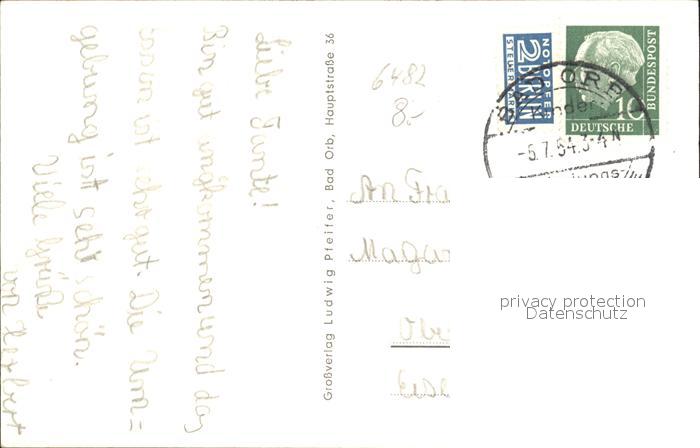 Liebe Tante!
Bin gut angekommen und das
ist sehr gut. Die Um=
gebung ist sehr schön.
Viele Grüße
von Herbert
Großverlag Ludwig Pfeifer, Bad Orb, Hauptstraße 36
6482
8.-
NOTOPFER
2 BERLIN
STEUERMARKE
BUNDESPOST
10
DEUTSCHE
BAD ORB
Kinder
-6.7.54.3-4
An Frau
Magar
Obe
Eise
privacy protection
Datenschutz